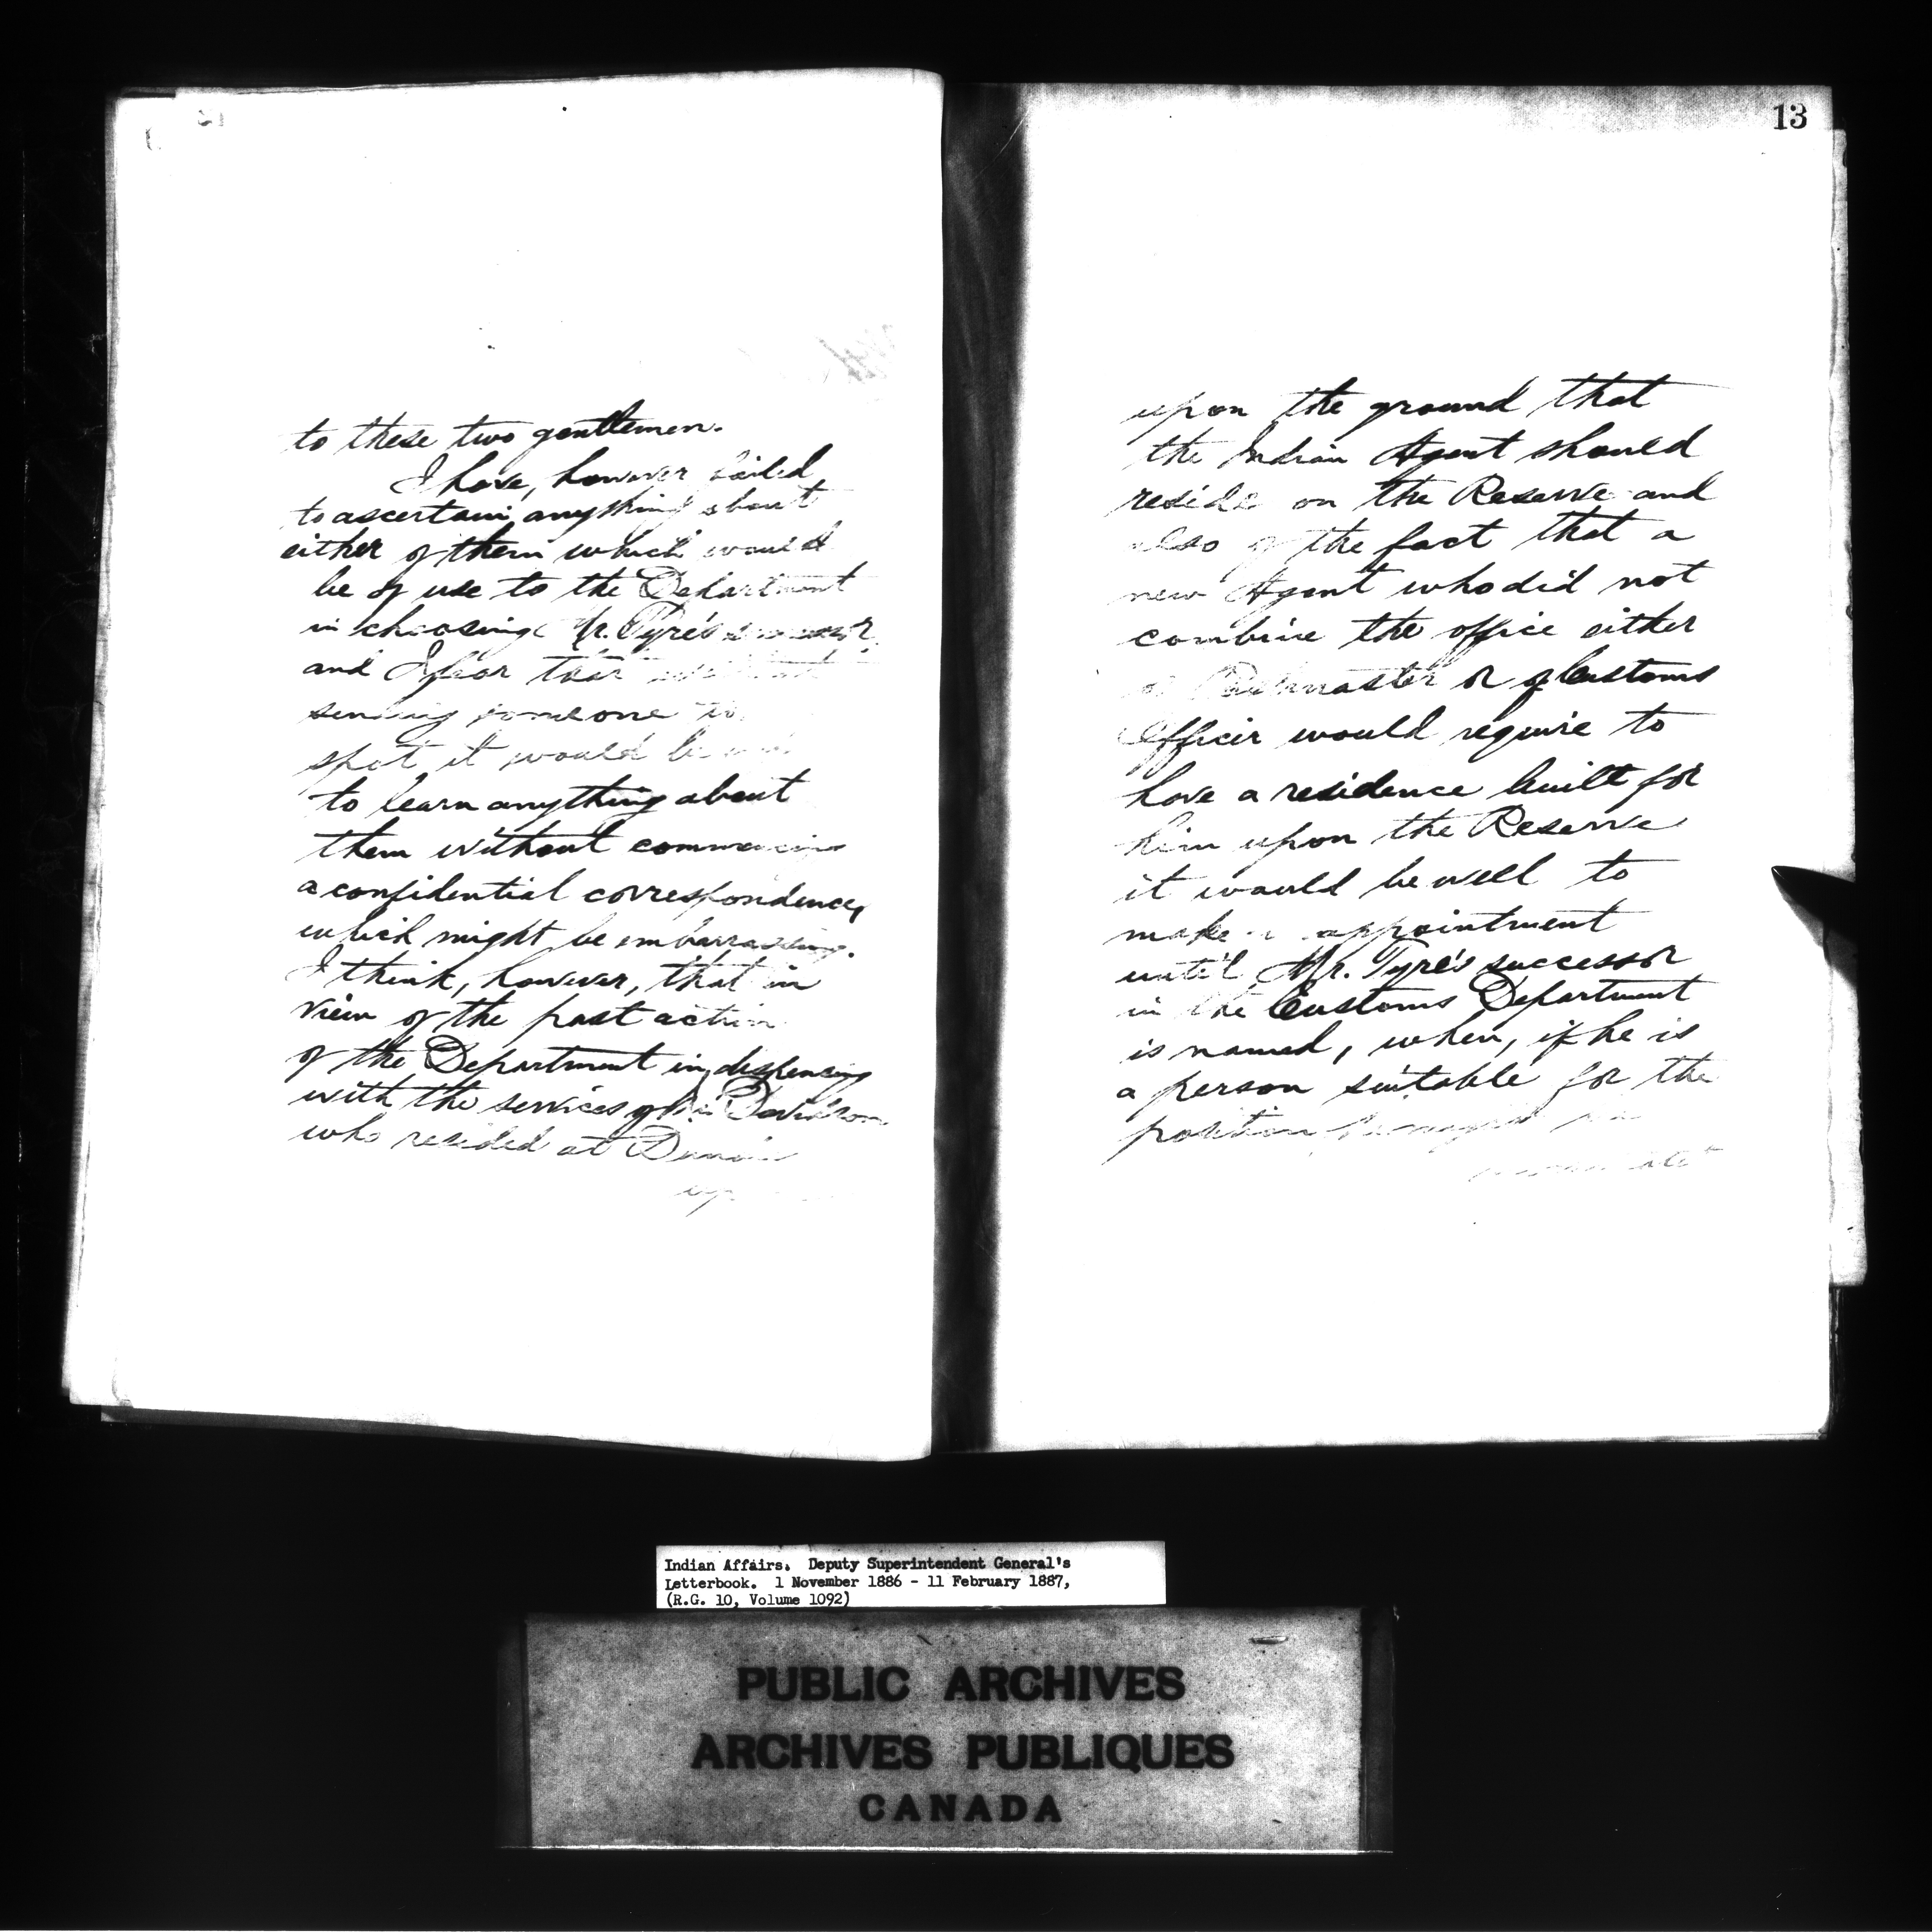 to these two gentlemen.
I have, however failed
to ascertain anything about
either of them which would
be of use to the Department
in choosing Mr. Tyre's successor
and I fear that without
sending someone to
spot it would be
to learn anything about
them without commencing
a confidential correspondence,
which might be embarrassing.
I think, however, that in
view of the past action
of the Department in dispensing
with the services of Mr. Davidson
who resided at Dundee
13
upon the ground that
the Indian Agent should
reside on the Reserve and
also of the fact that a
new Agent who did not
combine the office either
of Postmaster or of Customs
Officer would require to
have a residence built for
him upon the Reserve
it would be well to
make appointment
until Mr. Tyre's successor
in the Customs Department
is named, when, if he is
a person suitable for the
position he might
Indian Affairs. Deputy Superintendent General's
Letterbook. 1 November 1886 - 11 February 1887,
(R.G. 10, Volume 1092)
PUBLIC ARCHIVES
ARCHIVES PUBLIQUES
CANADA